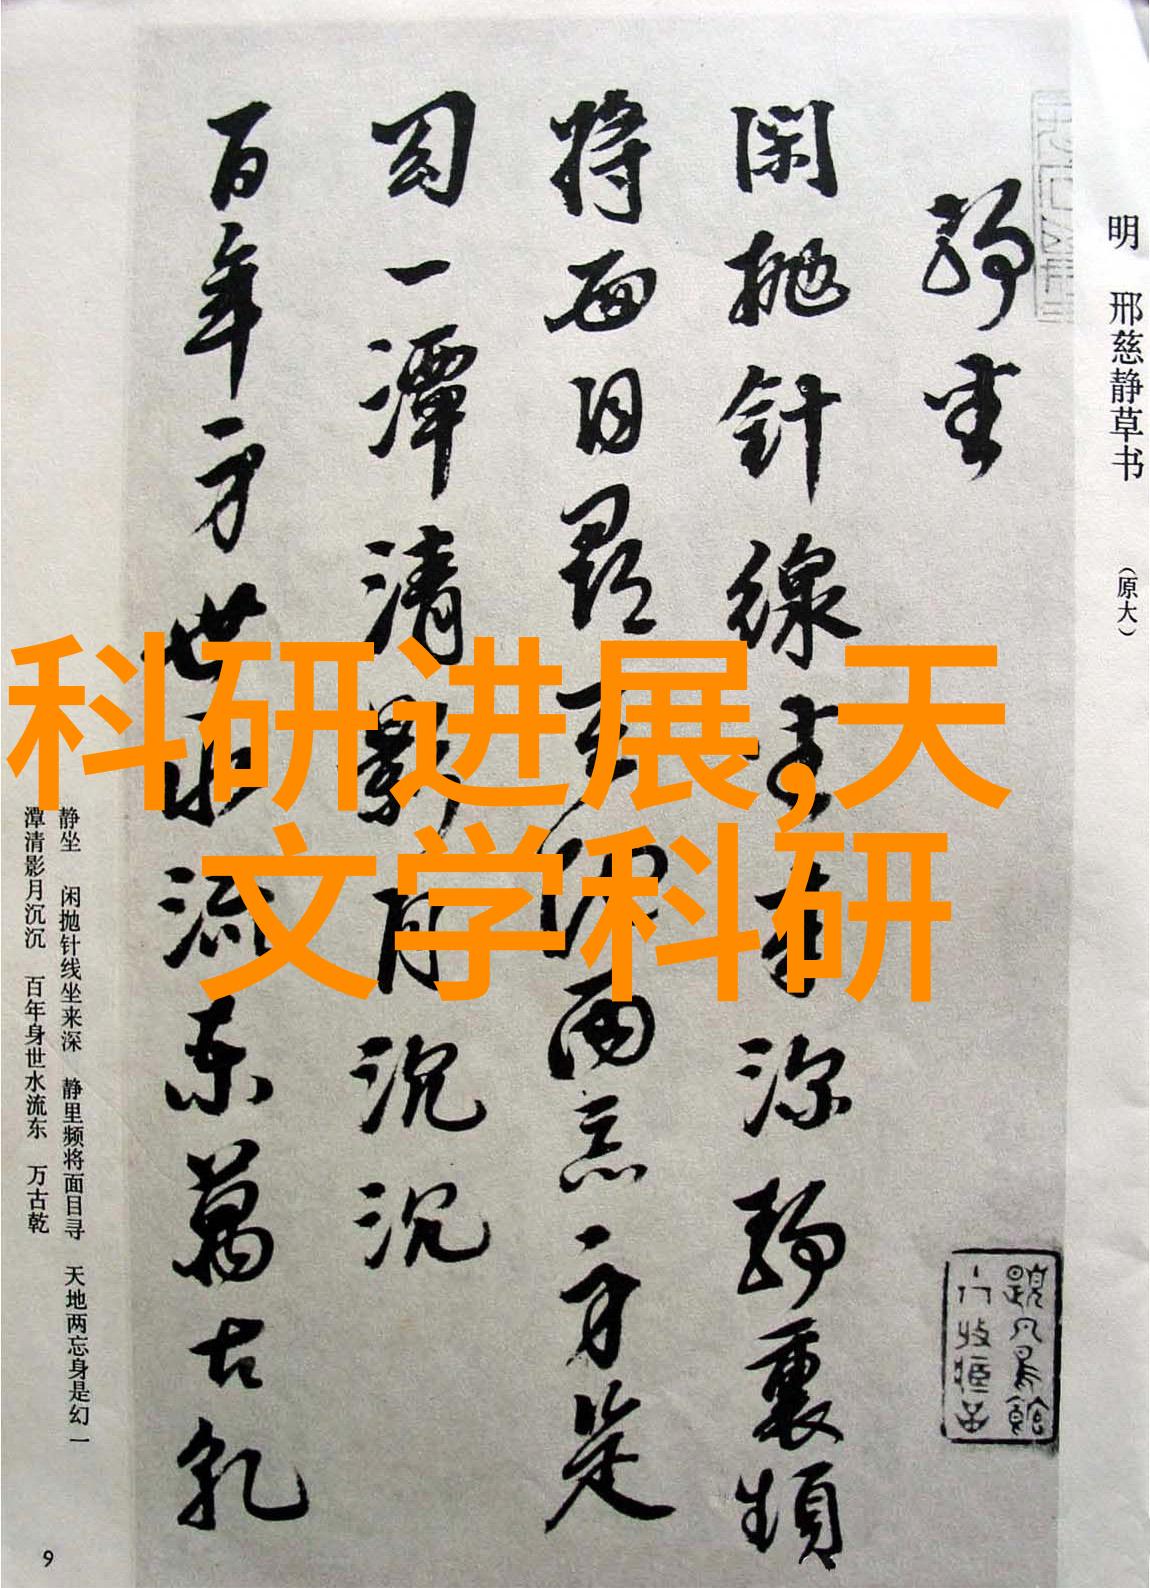 明 邢慈静草书 （原大）
静坐
闲抛针线坐来深静里频
将面目寻天地两忘身是
幻一潭清影月沉沉
百年身世水流东万古乾
科研进展,天
文学科研
静坐 闲抛针线坐来深 静里频将面目寻 天地两忘身是幻 一
潭清影月沉沉 百年身世水流东 万古乾
9